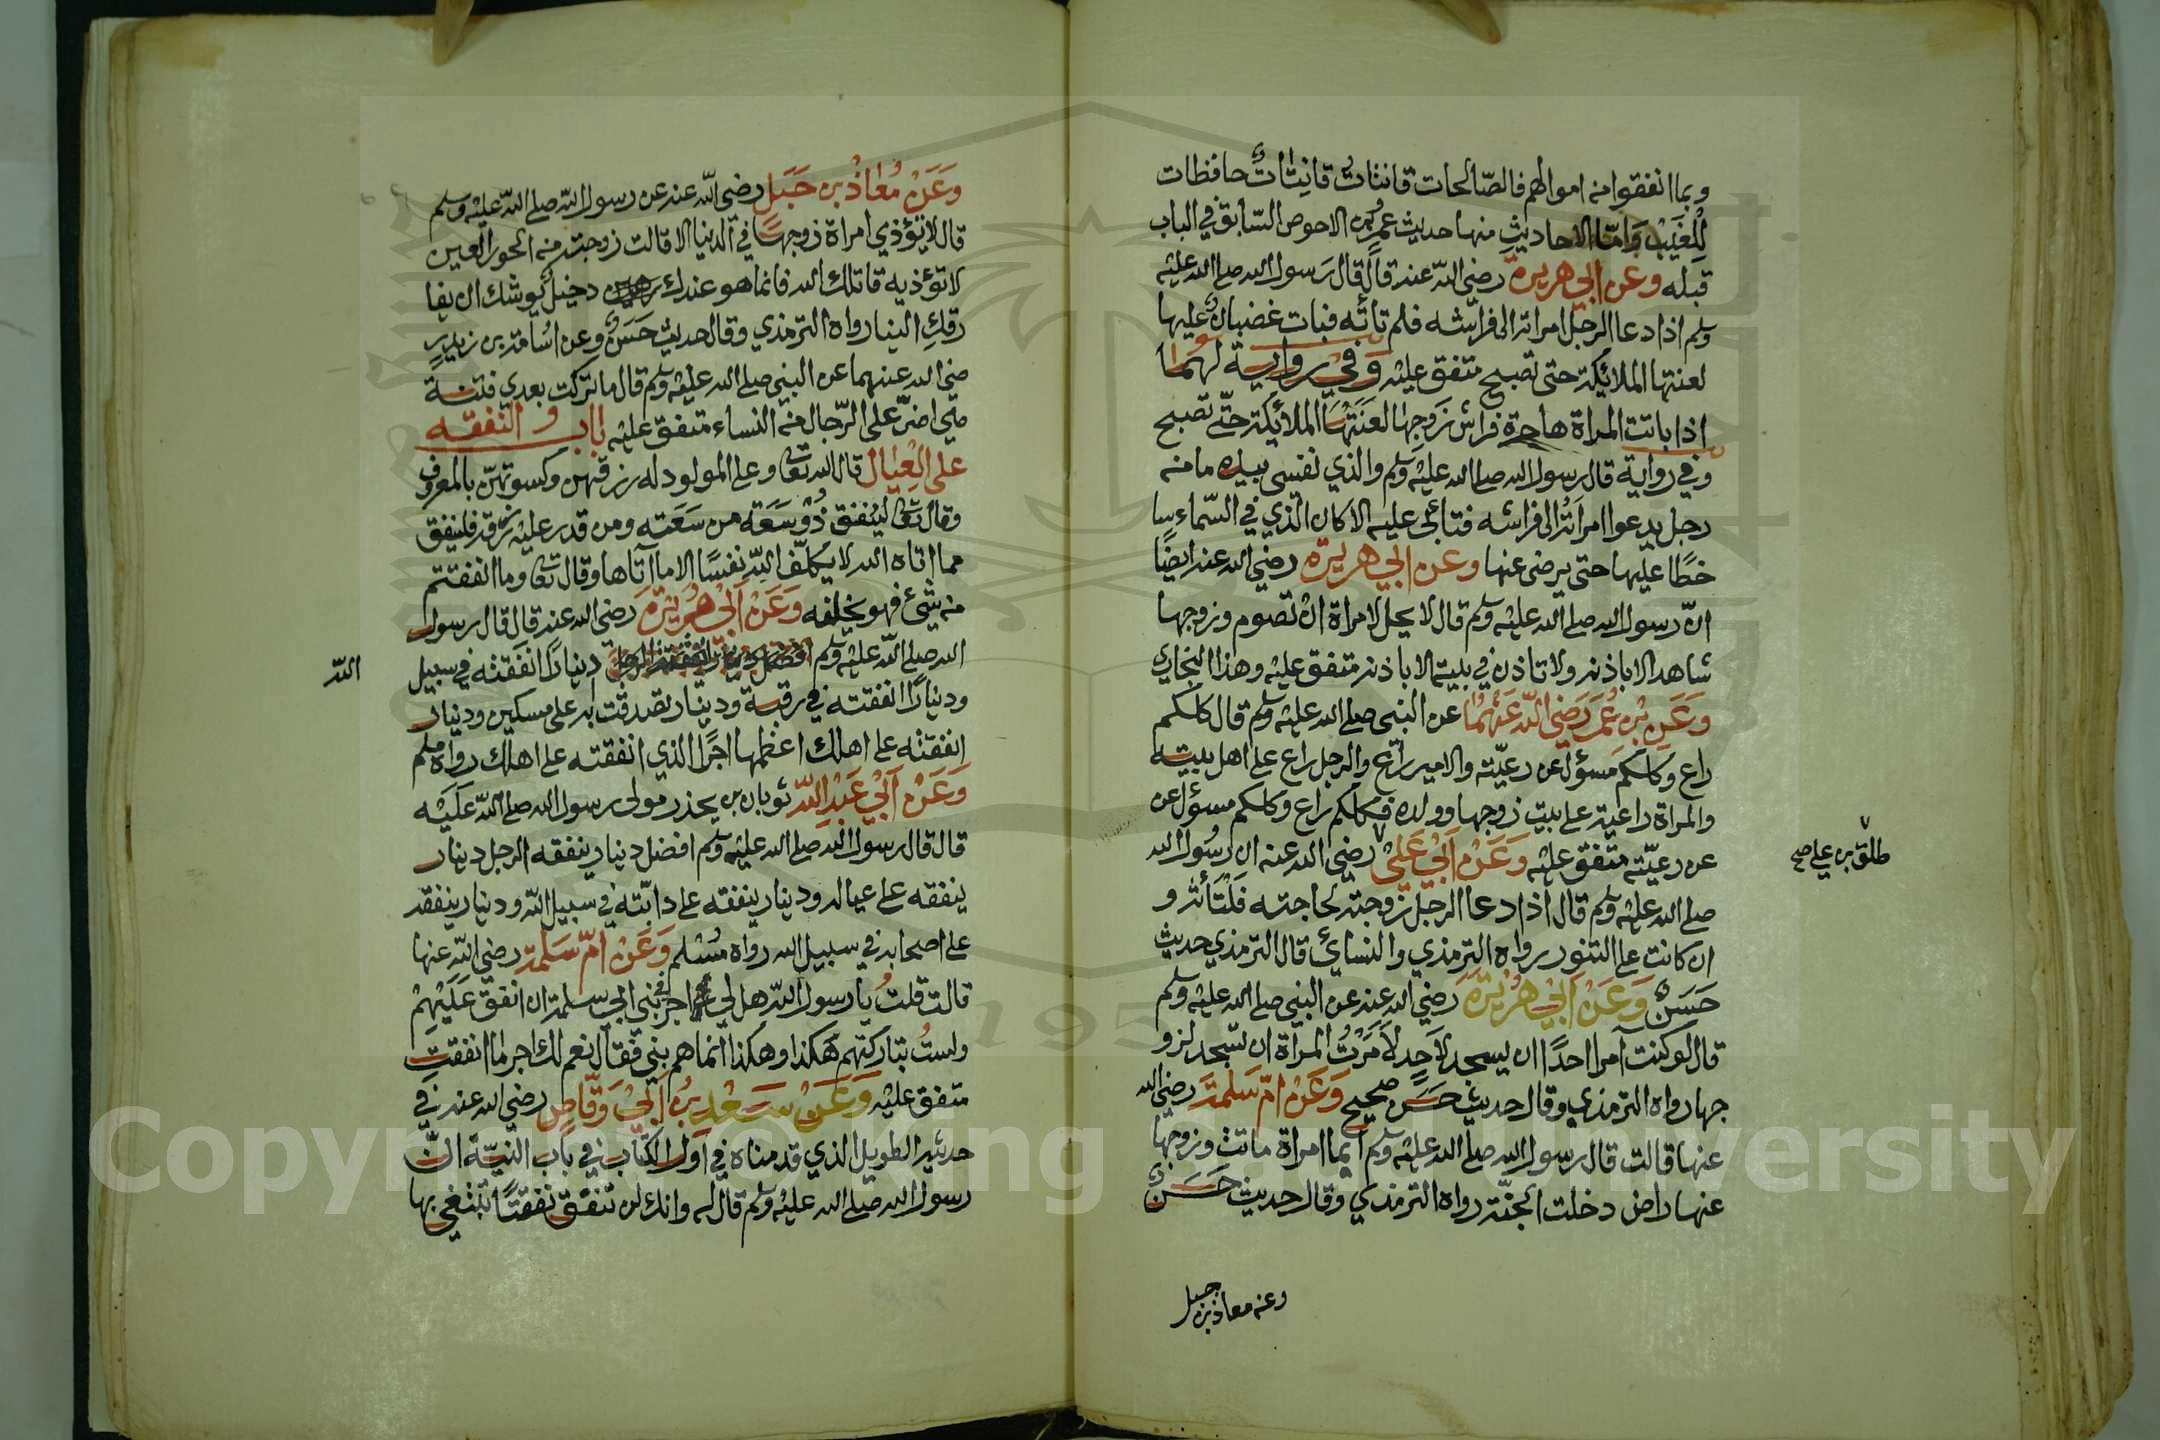 وبما انفقوا من اموالهم فالصّالحات قانتات قانِتاتٌ حافظات
لِلْغَيْبِ وَامّا الاحاديثِ منها حديث عمرو بن الاحوص السّابق في الباب
قبله وعن ابي هريرة رضي الله عنه قال قال رَسول الله صلى الله عليه
وسلم اذا دعا الرجل امراته الى فراشه فلم تأته فبات غضبان عليها
لعنتها الملائكة حتى تصبح متفق عليه وَفي رواية لهُمَا
اذا باتت المراة هاجرة فراش زَوجها لعنَتهَا الملائكة حتّى تصبح
وفي رواية قال رسول الله صلى الله عليه وسلم والذي نفسي بيده ما من
رجل يدعوا امراتهُ الى فراشه فتأبى عليه الا كان الذي في السّماء سا
خطًا عليها حتى يرضى عنها وعن ابي هريرة رضي الله عنه ايضًا
انّ رسول الله صلى الله عليه وسلم قال لا يحل لامراة ان تصوم وزوجها
شاهد الا باذنه ولا تاذن في بيته الا باذنه متفق عليه وهذا البخاري
وَعَنِ بْن عُمَرَ رَضي اللهُ عَنْهُمَا عن النبي صلى الله عليه وسلم قال كلكم
راع وكلكم مسؤل عن رعيّته والامير راعٍ والرجل راع على اهل بيته
والمراة راعية على بيت زوجها وولده فكلكم راع وكلكم مسئول عن
عن رعيّته متفق عليه وَعَنْ اَبِيْ عَلِيْ رضي الله عنه ان رسُول الله
طلق بن علي صح
صلى الله عليه وسلم قال اذا دعا الرجل زوجته لحاجته فَلْتَأته و
ان كانت على التنور رواه الترمذي والنسائي قال الترمذي حديث
حَسَنٌ وَعَنْ اَبِيْ هُرَيْرَة رضي الله عنه عن النبي صلى الله عليه وسلم
قال لو كنت آمرا احدًا ان يسجد لاَحدٍ لاَمَرْتُ المراة ان تسجد لزو
جها رواه الترمذي وقال حديث حَسَن صحيح وَعَنْ امّ سَلمَة رضي الله
عنها قالت قال رسول الله صلى الله عليه وسلم ايما امراة ماتت وزوجها
عنها راض دخلت الجنّة رواه الترمذي وقال حديث حَسَنٌ
وعن معاذ بن جبل
وَعَنْ مُعَاذْ بن جَبَل رضي الله عنه عن رسول الله صلى الله عليه وسلم
قال لا تؤذي امراة زوجها في الدنيا الا قالت زوجته من الحور العين
لا تؤذيه قاتلك الله فانما هو عندك دخيل يوشك ان يفا
رقكِ الينا رواه الترمذي وقال حديث حَسَنٌ وعن اسامة بن زيد ر
ضي الله عنهما عن النبي صلى الله عليه وسلم قال ما تركت بعدي فتنةً
هي اضرّ على الرّجال من النساء متفق عليه باب النفقه
على العِيَال قال الله تعا وعلى المولود له رزقهن وكسوتهنّ بالمعروف
وقال تعا لينفق ذُوْ سَعَة من سَعَته ومن قدر عليه رزقه فلينفق
مما اتاه الله لا يكلّف اللهُ نفسًا الا ما آتاها وقال تعا وما انفقتم
من شئ فهو يخلفه وَعَنْ اَبِيْ هُرَيْرَةَ رضي الله عنه قال قال رسول
الله صلى الله عليه وسلم دينارًا انفَقته في سبيل
الله
ودينارًا انفقته في رقبة ودينار تصدقت به على مسكين ودينار
انفقته على اهلك اعظمها اجرًا الذي انفقته على اهلك رواه مسلم
وَعَنْ اَبِيْ عَبْدِ اللهِ ثوبان بن بجدر مولى رسول الله صلى اللهُ عَليْه
قال قال رسول الله صلى الله عليه وسلم افضل دينار ينفقه الرجل دينار
ينفقه على عياله ودينار ينفقه على دابّته في سبيل الله ودينار ينفقه
على اصحابه في سبيل الله رواه مُسْلم وَعَنْ امّ سَلمة رضي الله عنها
قالت قلتُ يا رسول الله هل لي اجر في بني ابي سلمة ان انفق عَليْهِمْ
ولستُ بتاركتهم هَكذا وهكذا انما هم بني فقال نعم لك اجر ما انفقت
متفق عليه وَعَنْ سَعْدِ بْن اَبِيْ وَقّاصٍ رضي الله عنه في
حديثه الطويل الذي قدمناه في اَول الكتاب في باب النيّة انّ
رسول الله صلى الله عليه وسلم قال له وانك لن تنفق نفقتًا تبتغي بها
Copyright © King Saud University
195